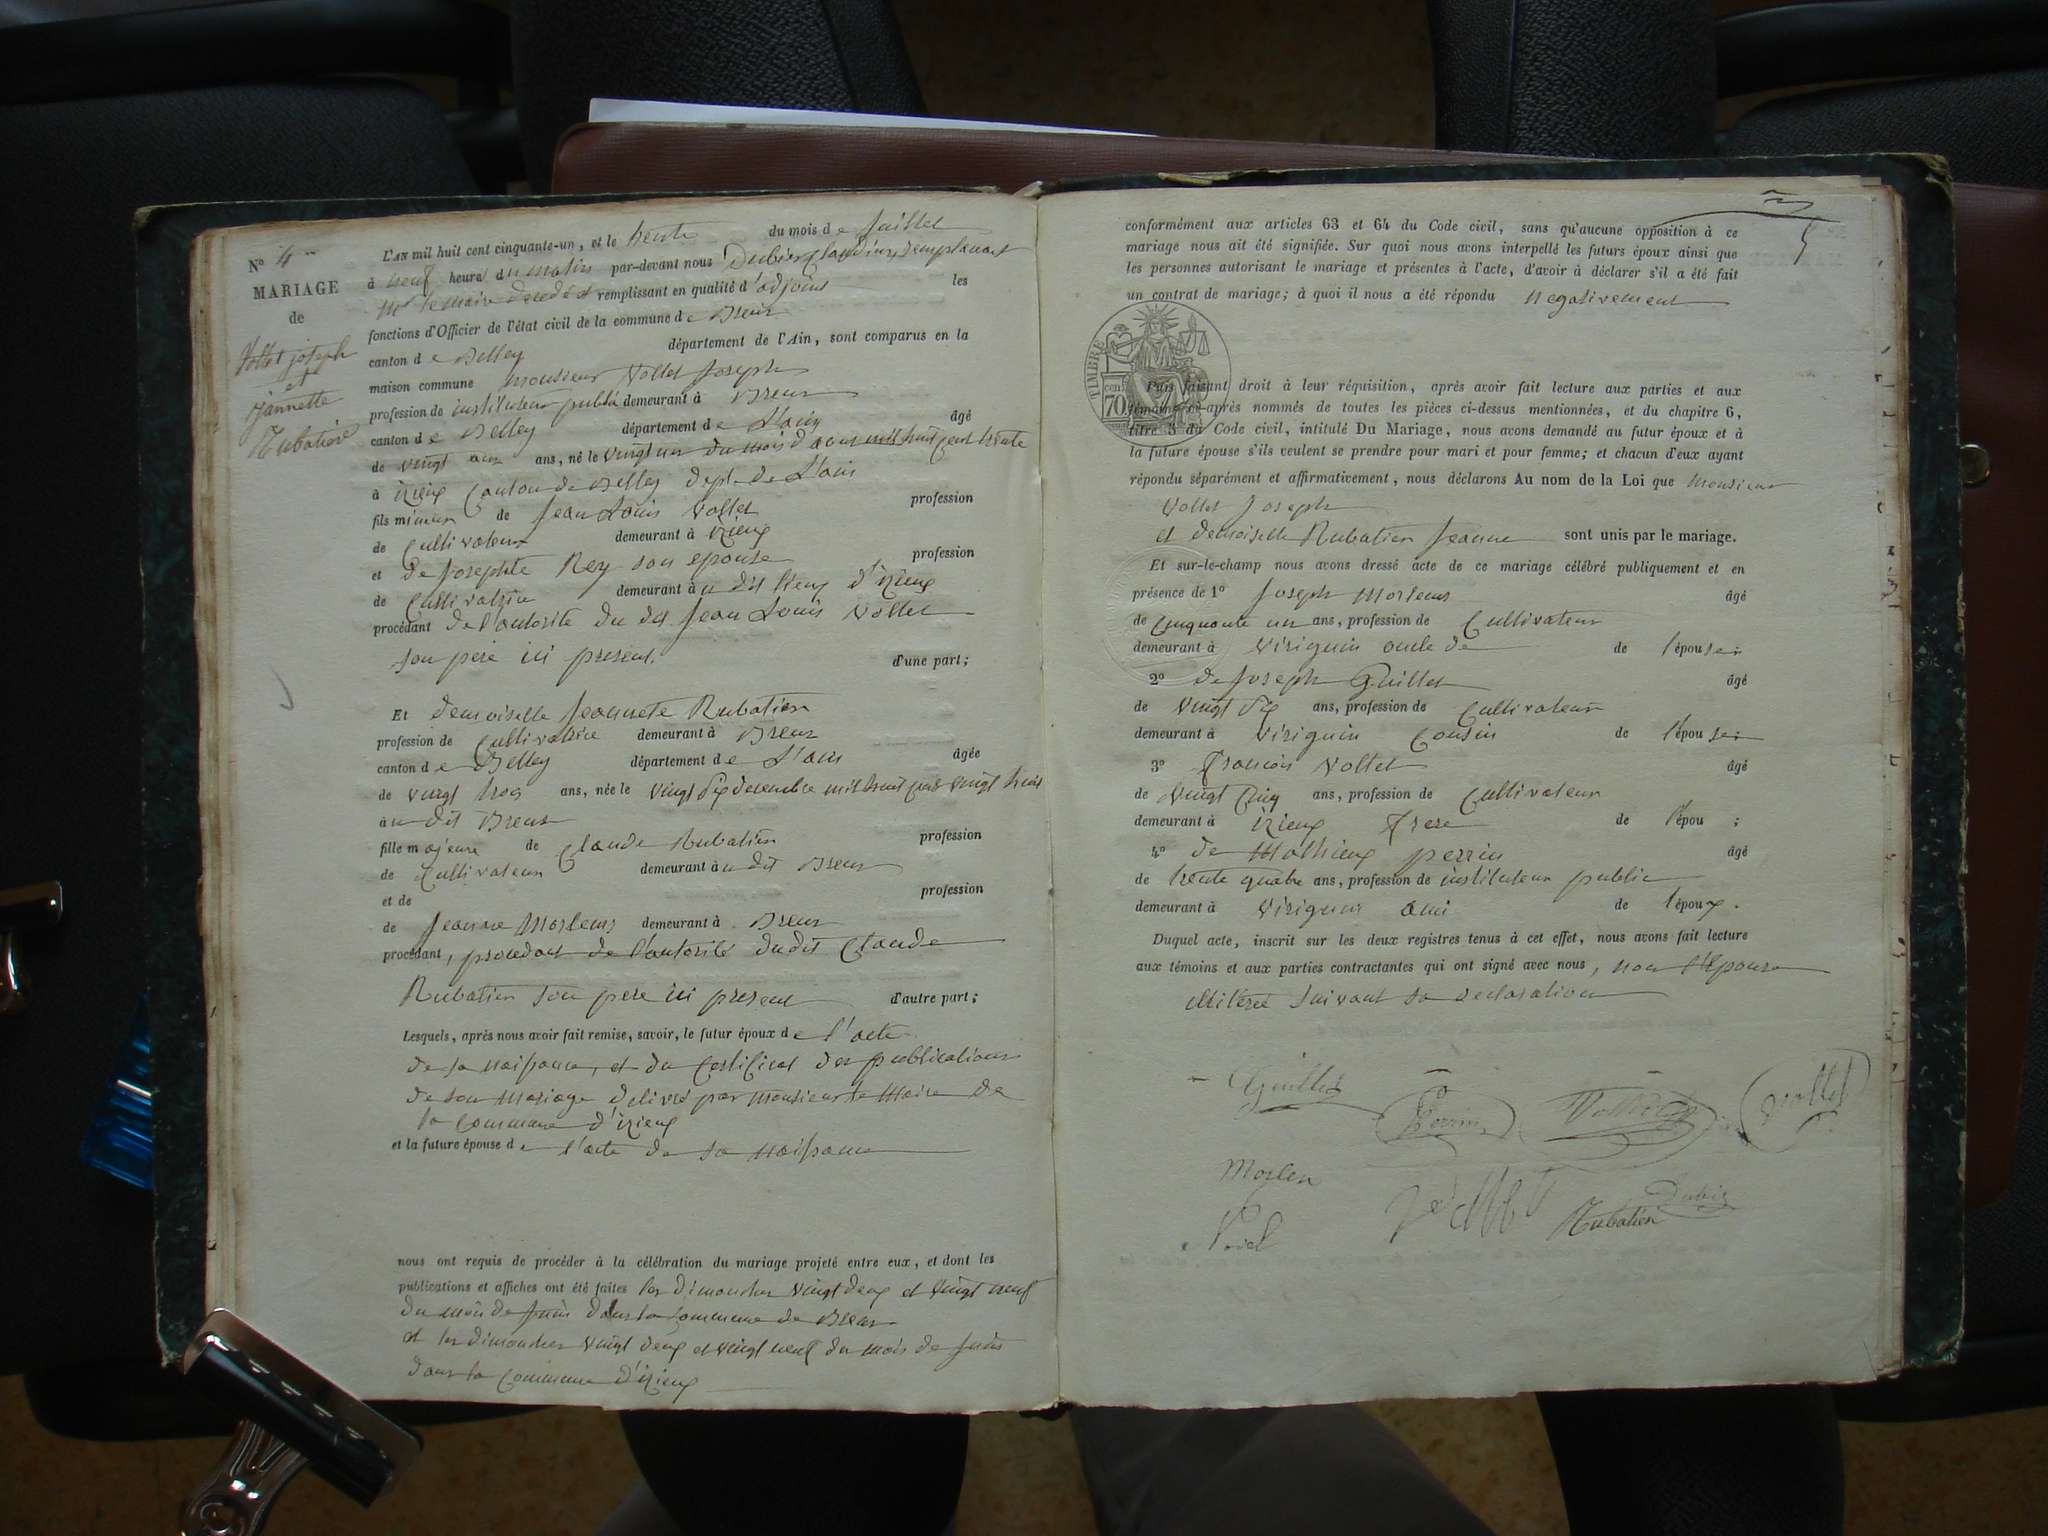 N° 4
MARIAGE
de
Vollet joseph
et
jannette
Rubatier
L'AN mil huit cent cinquante-un, et le trente du mois de Juillet
à neuf heure du matin par-devant nous Dubier remplacant
Mr le maire remplissant en qualité d'adjoint les
fonctions d'Officier de l'état civil de la commune de Brens
canton de Belley département de l'Ain, sont comparus en la
maison commune monsieur Vollet Joseph
profession de instituteur public demeurant à Brens
canton de Belley département de L'ain âgé
de vingt ans, né le vingt un du mois d mil huit cent trente
à izieux Canton de Belley dept de L'ain
fils mineur de Jean Louis Vollet profession
de Cultivateur demeurant à izieux
et de Josephte Rey son epouse profession
de Cultivatrice demeurant au dit lieux d'izieux
procédant de l'autorité du dit Jean Louis Vollet
son pere ici present. d'une part;
Et demoiselle Jeannete Rubatier
profession de Cultivatrice demeurant à Brens
canton de Belley département de L'ain âgée
de vingt trois ans, née le vingt six decembre mil huit cent vingt huit
au dit Brens
fille majeure de Claude Rubatier profession
de Cultivateur demeurant au dit Brens
et de profession
de Jeanne Morlens demeurant à Brens
procédant, procedant de l'autorité dudit Claude
Rubatier son pere ici present d'autre part;
Lesquels, après nous avoir fait remise, savoir, le futur époux de l'acte
de sa naissance, et du Certificat des publications
de son mariage delivré par monsieur le Maire de
la Commune d'izieux
et la future épouse de l'acte de sa naissance
nous ont requis de procéder à la célébration du mariage projeté entre eux, et dont les
publications et affiches ont été faites les dimanches vingt deux et vingt neuf
du mois de juin dans la commune de Brens
et les dimanches vingt deux et vingt neuf du mois de juin
dans la Commune d'izieux
conformément aux articles 63 et 64 du Code civil, sans qu'aucune opposition à ce
mariage nous ait été signifiée. Sur quoi nous avons interpellé les futurs époux ainsi que
les personnes autorisant le mariage et présentes à l'acte, d'avoir à déclarer s'il a été fait
un contrat de mariage; à quoi il nous a été répondu negativement
TIMBRE
70 cent
Puis faisant droit à leur réquisition, après avoir fait lecture aux parties et aux
témoins ci-après nommés de toutes les pièces ci-dessus mentionnées, et du chapitre 6,
titre 5 du Code civil, intitulé Du Mariage, nous avons demandé au futur époux et à
la future épouse s'ils veulent se prendre pour mari et pour femme; et chacun d'eux ayant
répondu séparément et affirmativement, nous déclarons Au nom de la Loi que monsieur
Vollet Joseph
et demoiselle Rubatier Jeanne sont unis par le mariage.
Et sur-le-champ nous avons dressé acte de ce mariage célébré publiquement et en
présence de 1° Joseph Morlens âgé
de Cinquante un ans, profession de Cultivateur
demeurant à Virignin oncle de de l'épouse;
2° de Joseph Guillet âgé
de vingt six ans, profession de Cultivateur
demeurant à Virignin Cousin de l'épouse;
3° Francois Vollet âgé
de vingt Cinq ans, profession de Cultivateur
demeurant à izieux frere de l'épou ;
4° de Mathieux perrin âgé
de trente quatre ans, profession de instituteur public
demeurant à Virignin ami de l'époux.
Duquel acte, inscrit sur les deux registres tenus à cet effet, nous avons fait lecture
aux témoins et aux parties contractantes qui ont signé avec nous, non l'Epouse
illitérée suivant sa declaration
Guillet
Perrin
Vollet
Vollet
Morlen
Dubier
Rubatier